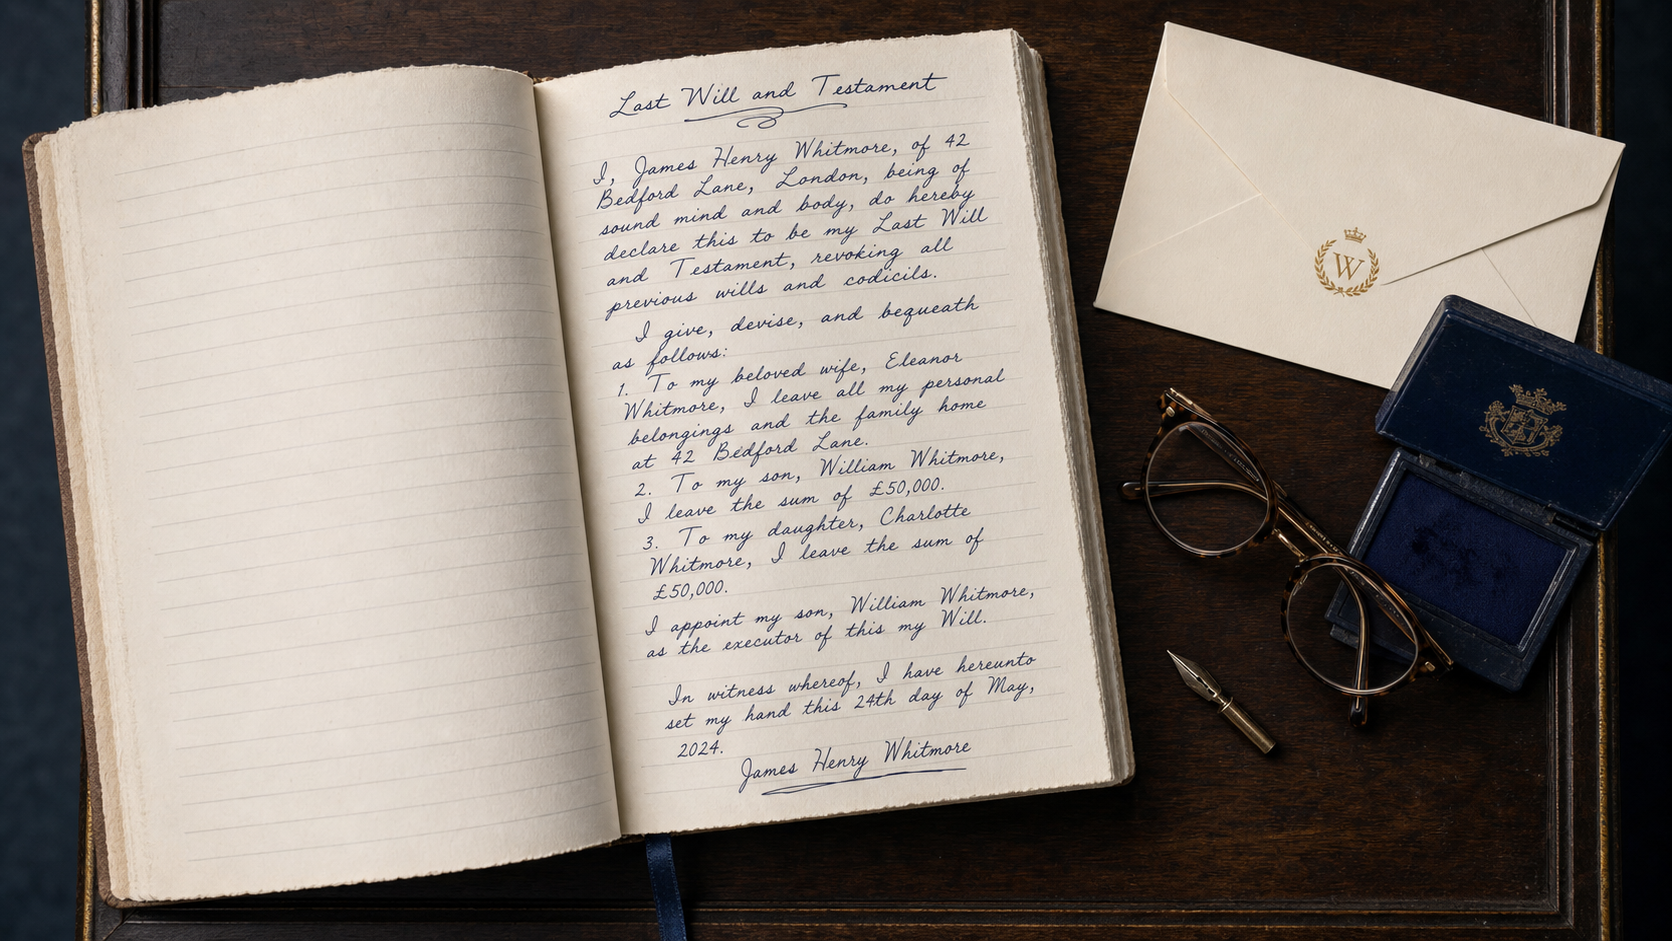 Last Will and Testament
I, James Henry Whitmore, of 42
Bedford Lane, London, being of
sound mind and body, do hereby
declare this to be my Last Will
and Testament, revoking all
previous wills and codicils.
I give, devise, and bequeath
as follows:
1. To my beloved wife, Eleanor
Whitmore, I leave all my personal
belongings and the family home
at 42 Bedford Lane.
2. To my son, William Whitmore,
I leave the sum of £50,000.
3. To my daughter, Charlotte
Whitmore, I leave the sum of
£50,000.
I appoint my son, William Whitmore,
as the executor of this my Will.
In witness whereof, I have hereunto
set my hand this 24th day of May,
2024.
James Henry Whitmore
W